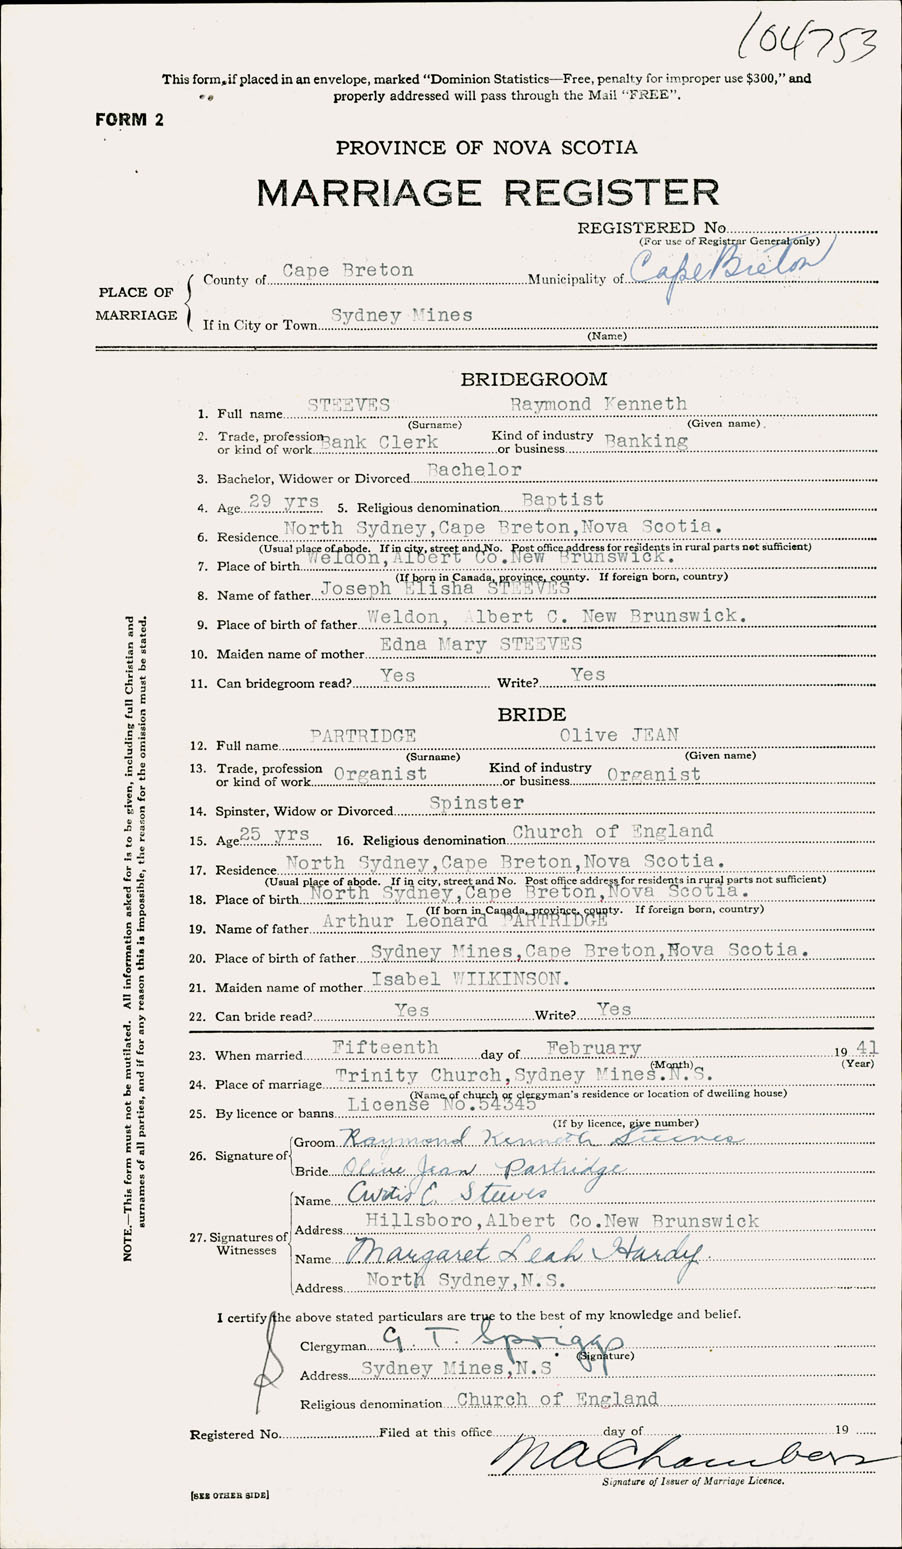 104753
This form, if placed in an envelope, marked “Dominion Statistics—Free, penalty for improper use $300,” and
properly addressed will pass through the Mail “FREE”.
FORM 2
PROVINCE OF NOVA SCOTIA
MARRIAGE REGISTER
REGISTERED No.
(For use of Registrar General only)
PLACE OF MARRIAGE
County of Cape Breton Municipality of Cape Breton
If in City or Town Sydney Mines
(Name)
BRIDEGROOM
1. Full name STEEVES Raymond Kenneth
(Surname) (Given name)
2. Trade, profession or kind of work Bank Clerk Kind of industry or business Banking
3. Bachelor, Widower or Divorced Bachelor
4. Age 29 yrs 5. Religious denomination Baptist
6. Residence North Sydney,Cape Breton,Nova Scotia.
(Usual place of abode. If in city, street and No. Post office address for residents in rural parts not sufficient)
7. Place of birth Weldon,Albert Co.New Brunswick.
(If born in Canada, province, county. If foreign born, country)
8. Name of father Joseph Elisha STEEVES
9. Place of birth of father Weldon, Albert C. New Brunswick.
10. Maiden name of mother Edna Mary STEEVES
11. Can bridegroom read? Yes Write? Yes
BRIDE
12. Full name PARTRIDGE Olive JEAN
(Surname) (Given name)
13. Trade, profession or kind of work Organist Kind of industry or business Organist
14. Spinster, Widow or Divorced Spinster
15. Age 25 yrs 16. Religious denomination Church of England
17. Residence North Sydney,Cape Breton,Nova Scotia.
(Usual place of abode. If in city, street and No. Post office address for residents in rural parts not sufficient)
18. Place of birth North Sydney,Cape Breton,Nova Scotia.
(If born in Canada, province, county. If foreign born, country)
19. Name of father Arthur Leonard PARTRIDGE
20. Place of birth of father Sydney Mines,Cape Breton,Nova Scotia.
21. Maiden name of mother Isabel WILKINSON.
22. Can bride read? Yes Write? Yes
23. When married Fifteenth day of February 19 41
(Month) (Year)
24. Place of marriage Trinity Church,Sydney Mines.N.S.
(Name of church or clergyman's residence or location of dwelling house)
25. By licence or banns License No.54345
(If by licence, give number)
26. Signature of
Groom Raymond Kenneth Steeves
Bride Olive Jean Partridge
27. Signatures of Witnesses
Name Curtis C. Steeves
Address Hillsboro,Albert Co.New Brunswick
Name Margaret Leah Hardy.
Address North Sydney,N.S.
I certify the above stated particulars are true to the best of my knowledge and belief.
Clergyman G. T. Spriggs
(Signature)
Address Sydney Mines,N.S.
Religious denomination Church of England
Registered No. Filed at this office day of 19
M A Chambers
Signature of Issuer of Marriage Licence.
[SEE OTHER SIDE]
NOTE.—This form must not be mutilated. All information asked for is to be given, including full Christian and
surnames of all parties, and if for any reason this is impossible, the reason for the omission must be stated.